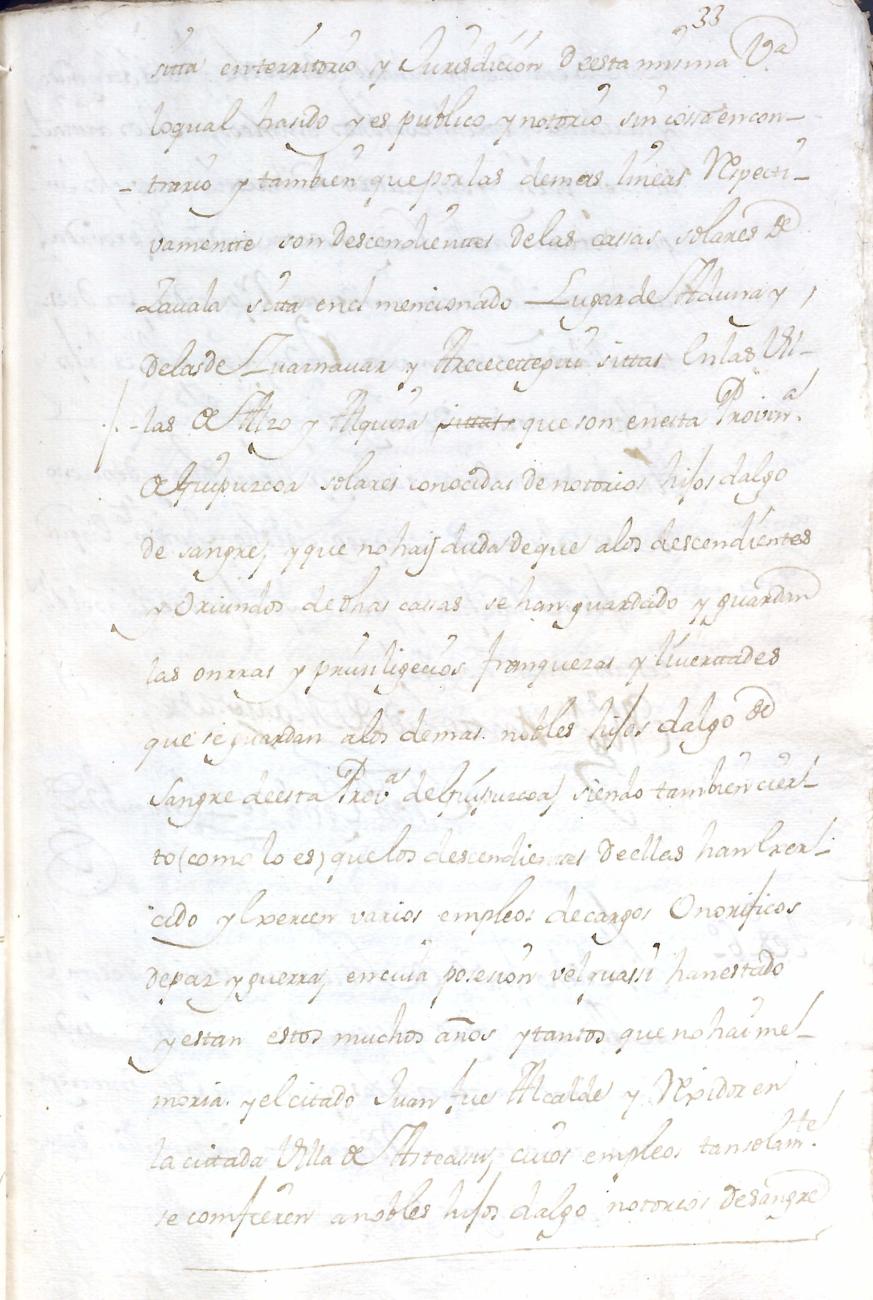 33
sitta en territorio y Jurisdicion de esta misma Va
loqual hasido y es publico y notorio sin cossa encon-
-trario y tambien que por las demas lineas Respecti-
vamente son descendientes delas cassas solares de
Zavala sitta enel mencionado Lugar de Aduna y
delas de y sittas en las Vi-
-las de Alzo y Alquiza sittas que son enesta Provina
de Guipuzcoa solares conocidas de notorios hijos dalgo
de sangre, y que no haij duda de que alos descendientes
y Oriundos de dhas cassas se han guardado y guardan
las onrras y franquezas y livertades
que se guardan alos demas nobles hijos dalgo de
Sangre deesta Prova de Guipuzcoa, siendo tambien cier-
to (como lo es) que los descendientes de ellas han Exer-
cido y Exercen varios empleos de cargos Onorificos
de paz y guerra, en cuia posesion velquassi han estado
y estan estos muchos años y tantos que no hai me-
moria y el citado Juan fue Alcalde y Rexidor en
la cittada Villa de Asteasu, cuios empleos tan solamte
se confieren a nobles hijos dalgo notorios de sangre